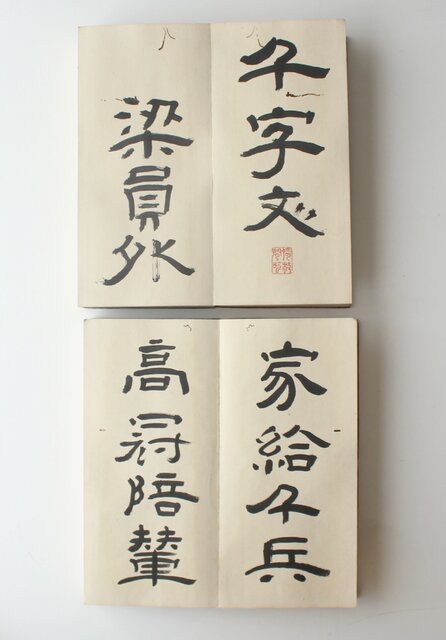 千字文
梁員外
家給千兵
高冠陪輦